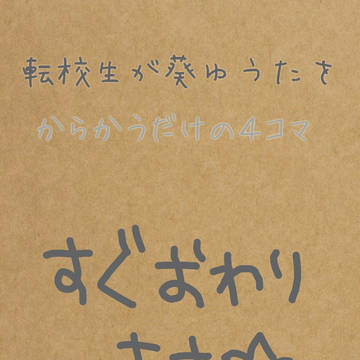 転校生が葵ゆうたを
からかうだけの4コマ
すぐおわり